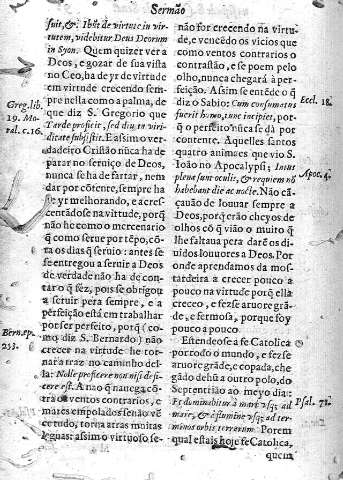 Sermão
suit,&: Ibũt de virtute in vir-
tutem, videbitur Deus Deorum
in Syon. Quem quizer ver a
Deos, e gozar de sua vista
no Ceo, ha de yr de virtude
em virtude crecendo sem
pre nella como a palma, de
que diz S. Gregorio que
Tarde proficit, sed diu in viri-
ditate subsistit. E assi o ver-
dadeiro Cristão nũca ha de
parar no seruiço de Deos,
nunca se ha de fartar, nem
dar por cõtente, sempre ha
de yr melhorando, e acres-
centãdo se na virtude, porq̃
não he como o mercenario
q̃ como serue por tẽpo, cõ-
ta os dias q̃ seruio: antes se
se entregou a seruir a Deos
de verdade não ha de con-
tar o q̃ fez, pois se obrigou
a seruir pera sempre, e a
perfeição està em trabalhar
por ser perfeito, porq̃ (co-
mo diz S. Bernardo) não
crecer na virtude he tor-
nar a traz no caminho del-
la: Nolle proficere non nisi de fi-
cere est. A nao q̃ nauega cõ-
tra os ventos contrarios, e
mares empolados se não vẽ-
ce tudo, torna atras muitas
legoas: assi o virtuoso se
Greg. lib.
19. Mo-
ral. c. 16.
Bern. ep.
253.
não for crecendo na virtu-
de, e vencẽdo os vicios que
como ventos contrarios o
contrastão, e se poem pelo
olho, nunca chegarà à per-
feição. Assi se entẽde o q̃
diz o Sabio: Cum consumatus
fuerit homo, tunc incipiet, por-
q̃ o perfeito nũca se dà por
contente. Aquelles santos
quatro animaes que vio S.
Ioão no Apocalypsi; Intus
plena sunt oculis, & requiem nõ
habebant die ac nocte. Não cã-
çauão de louuar sempre a
Deos, porq̃ erão cheyos de
olhos cõ q̃ vião o muito q̃
lhe faltaua pera darẽ os di-
uidos louuores a Deos. Por
onde aprendamos da mos-
tardeira a crecer pouco a
pouco na virtude porq̃ ella
creceo, e fez se aruore grã-
de, e fermosa, porque foy
pouco a pouco.
Estendeo se a fe Catolica
por todo o mundo, e fez se
aruore grãde, e copada, che
gãdo dehũ a outro polo, do
Septentrião ao meyo dia:
Et dominabitur à mari vsq; ad
mare, & à flumine vsq; ad ter-
minos orbis terrarum. Porem
qual estais hoje fe Catolica,
quem
Eccl. 18.
Apoc. 4.
Psal. 71.